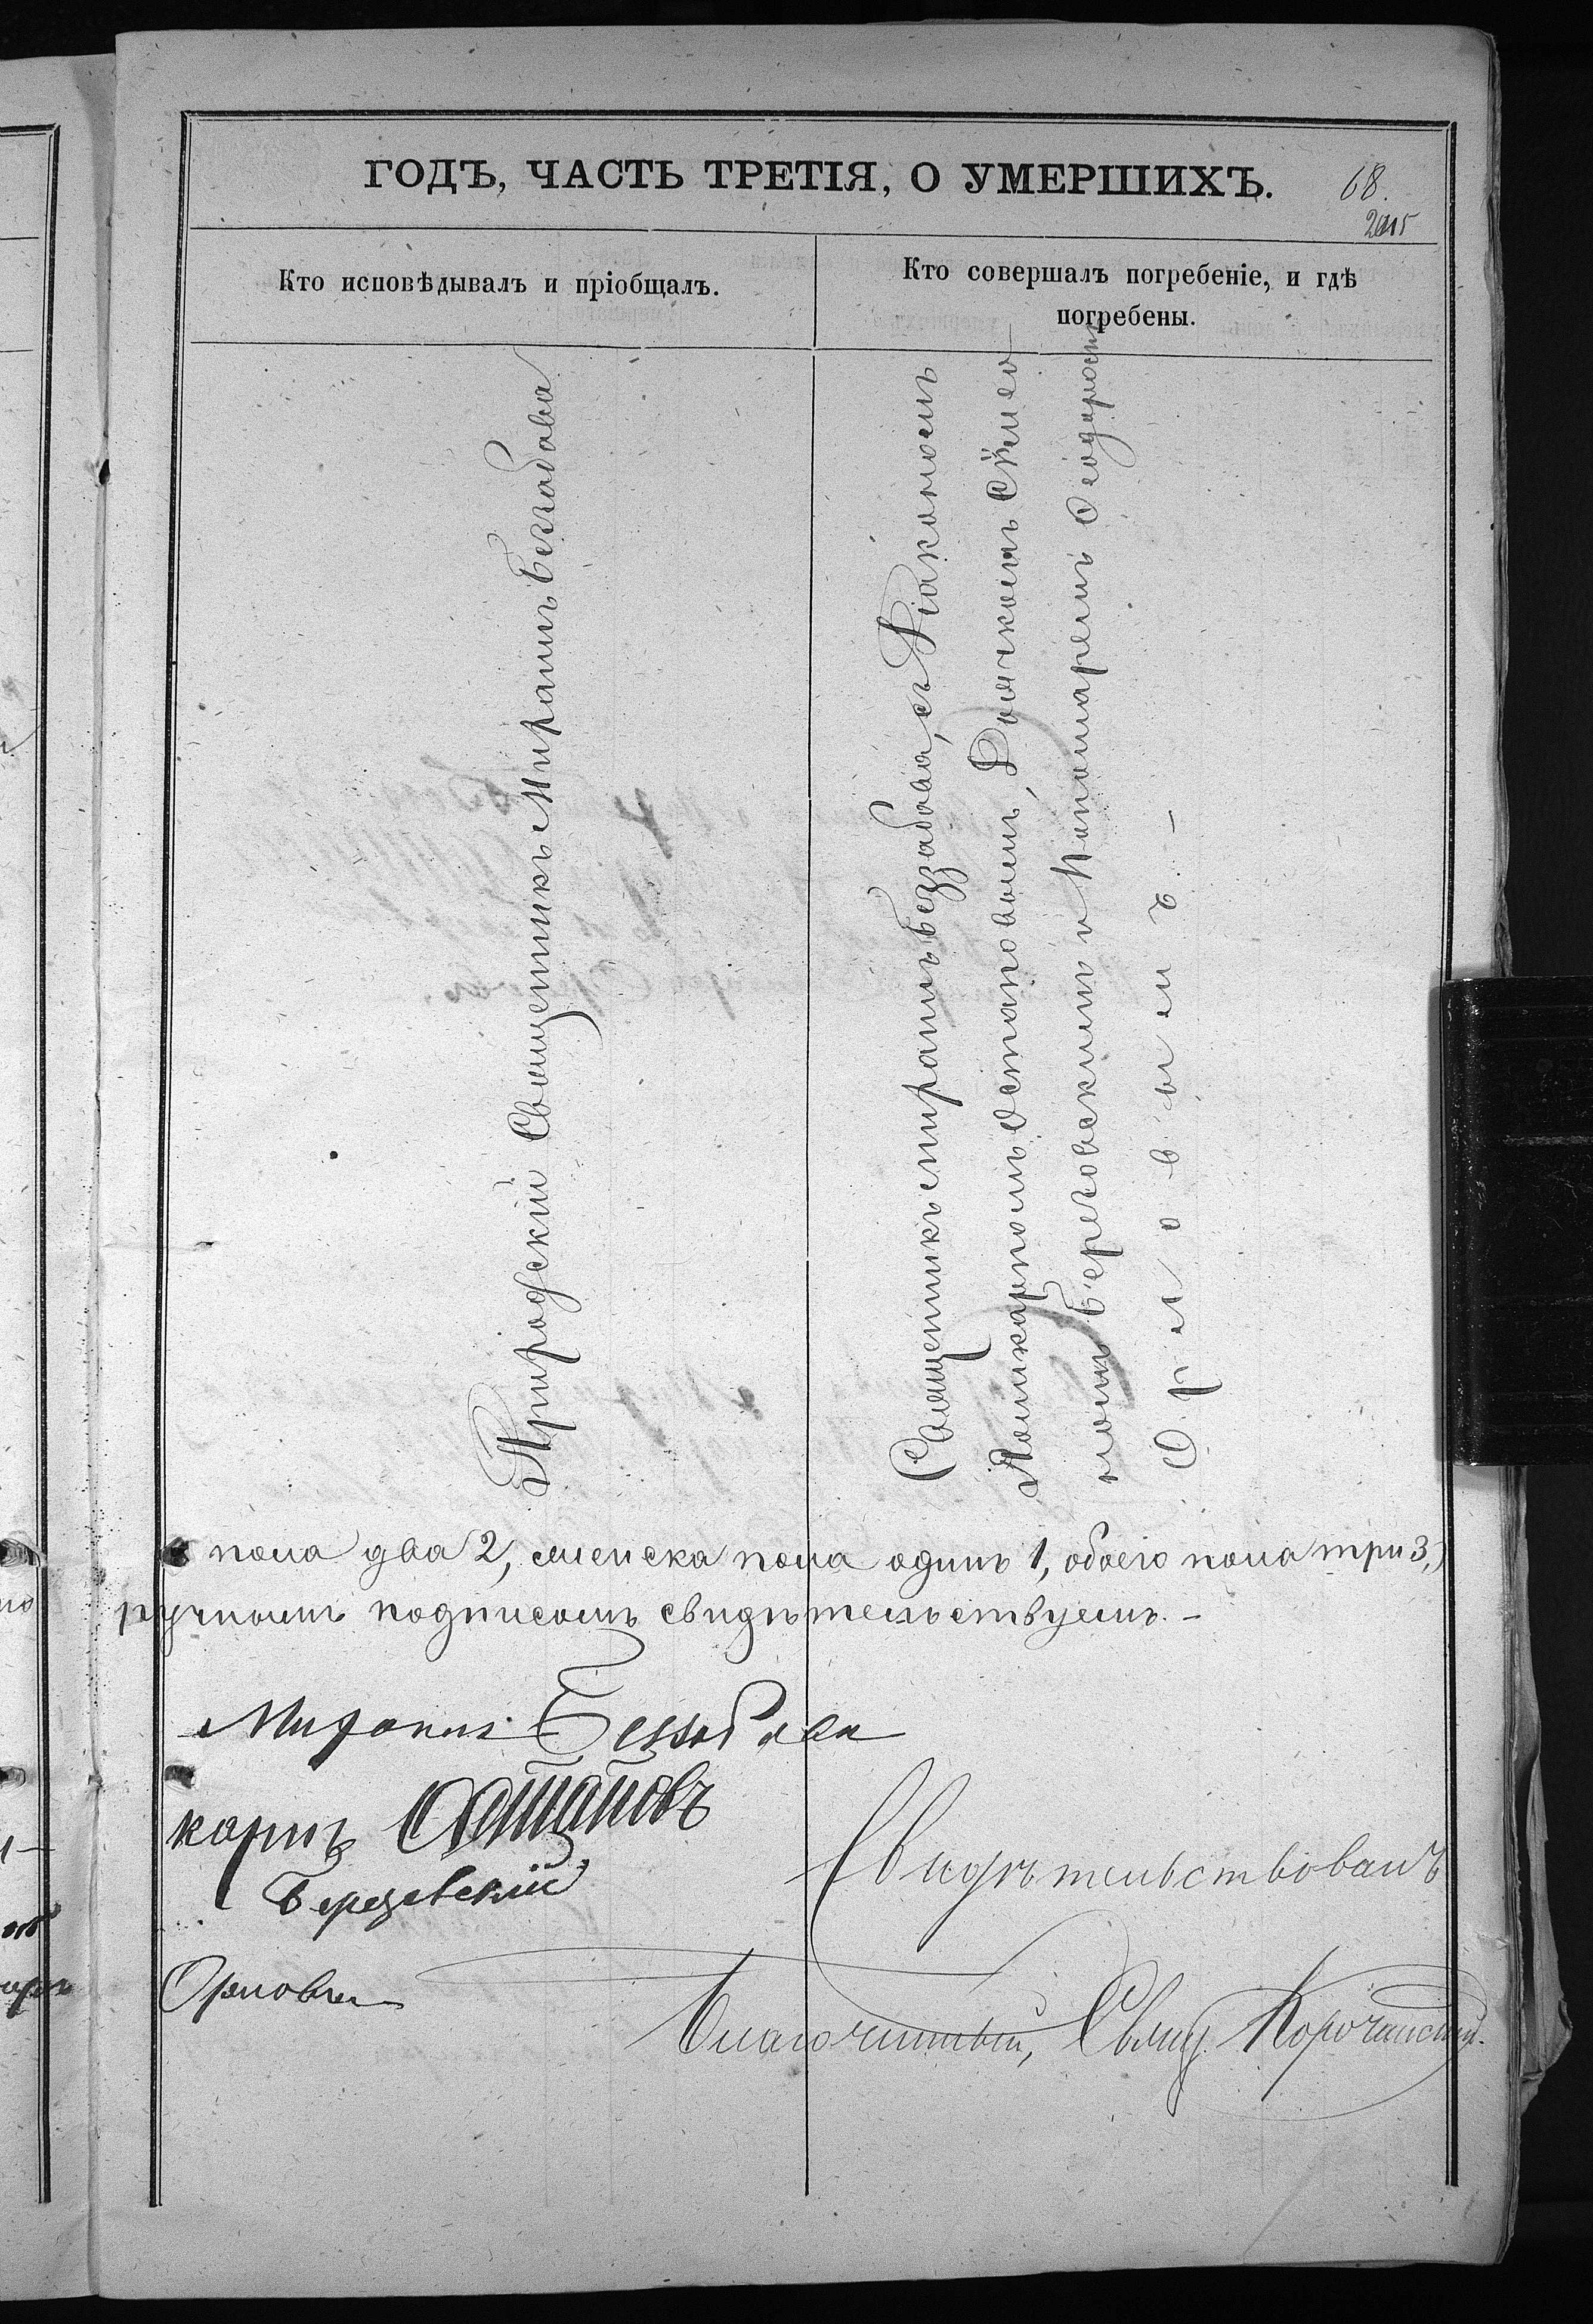 ГОДЪ, ЧАСТЬ ТРЕТІЯ, О УМЕРШИХЪ.
68.
Кто исповѣдывалъ и пріобщалъ.
Кто совершалъ погребеніе, и гдѣ
погребены.
Приходскій Священникъ Миронъ Беззабава
Священникъ Миронъ Беззабава, съ Діакономъ
Поликарпомъ Остаповымъ, Дьячкомъ
номъ Березовскимъ и Пономаремъ Ѳеодоромъ
Орловымъ. –
пола два 2, женска пола одинъ 1, обоего пола три 3,
ручномъ подписомъ свидѣтельствуемъ. –
Миронъ Беззабава
карпъ Остаповъ
Березовскій
Орловъ
Свидѣтельствовалъ
Благочинный, Свящ. Корочанскій.